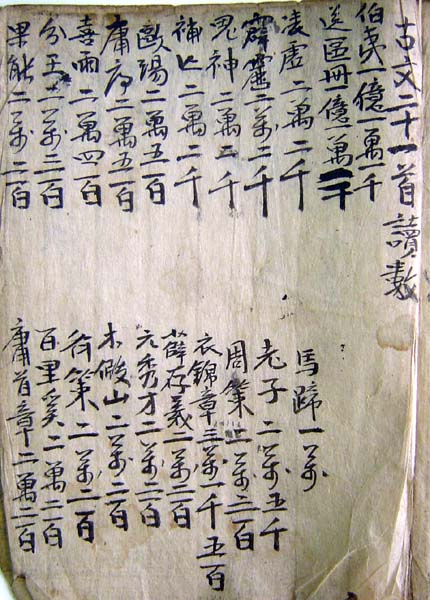 古文二十一首讀數
伯夷一億一萬一千
送區冊一億一萬千
凌虛二萬二千
霹靂二萬二千
鬼神二萬二千
補亡二萬二千
歐陽二萬五百
庸序二萬五百
喜雨二萬四百
分王二萬二百
果能二萬二百
馬蹄一萬
老子二萬五千
周策萬二百
衣錦章三萬一千五百
薛存義二萬二百
元秀才二萬二百
木假山二萬二百
齊策二萬二百
百里奚二萬二百
庸首章二萬二百